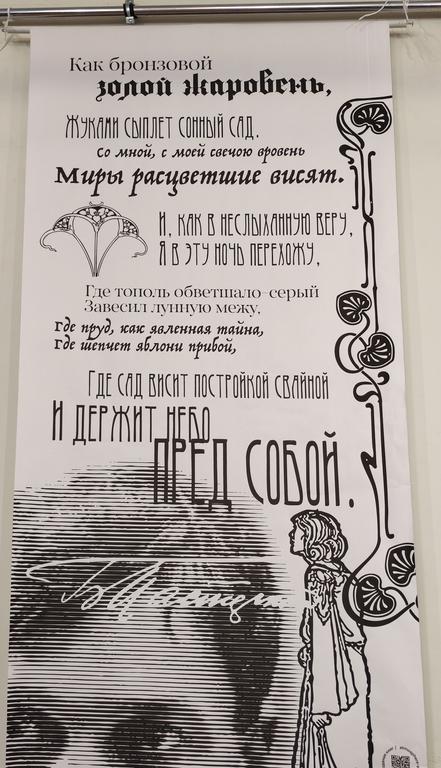 Как бронзовой
золой жаровень,
Жуками сыплет сонный сад.
Со мной, с моей свечою вровень
Миры расцветшие висят.
И, как в неслыханную веру,
Я в эту ночь перехожу,
Где тополь обветшало-серый
Завесил лунную межу,
Где пруд, как явленная тайна,
Где шепчет яблони прибой,
Где сад висит постройкой свайной
И держит небо
пред собой.